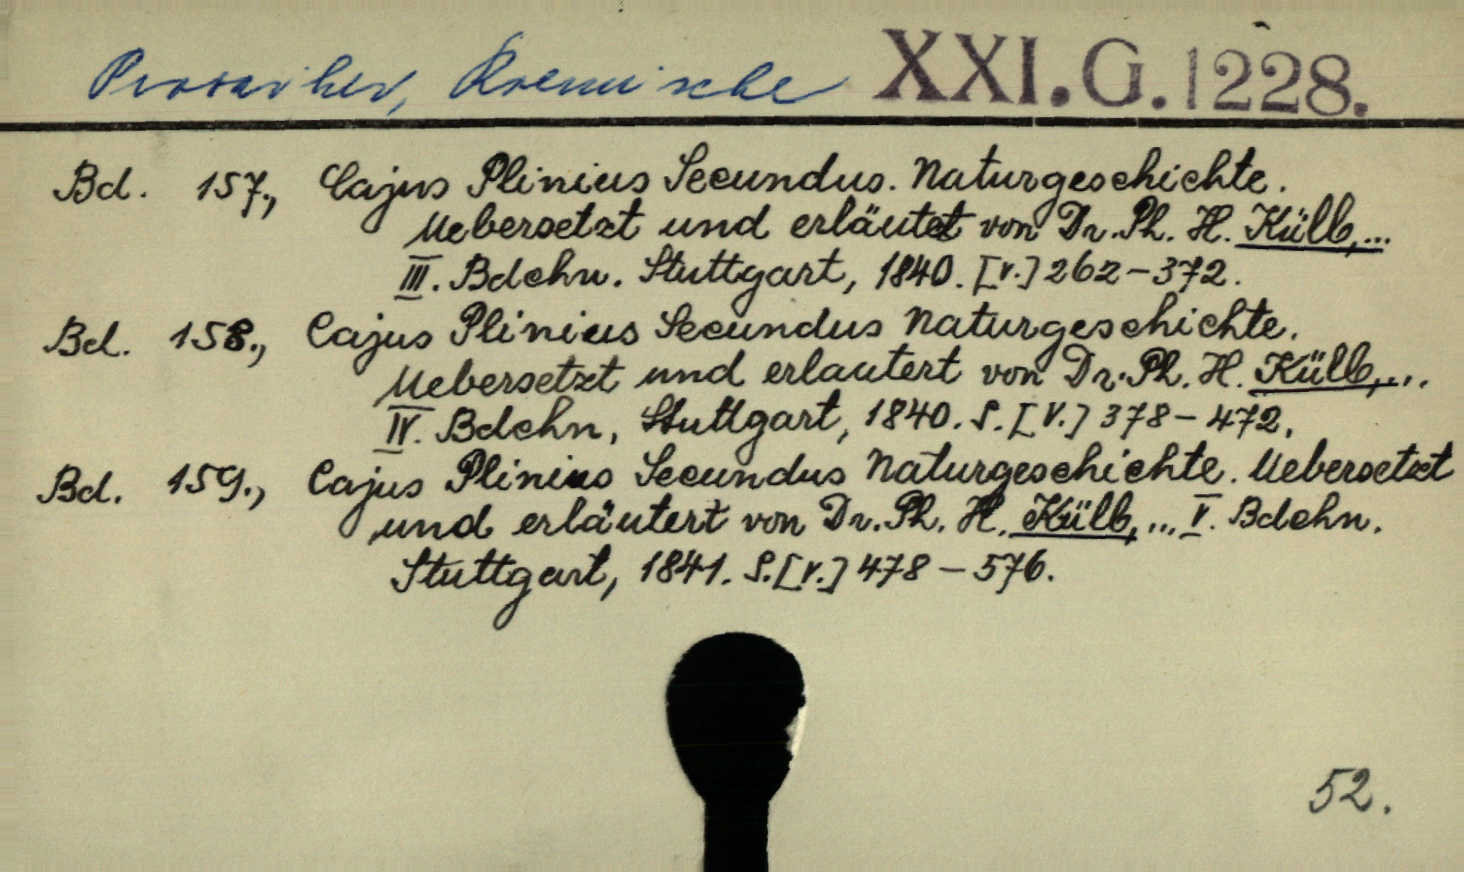 Prosaiker, Roemische XXI.G.1228.
Bd. 157., Cajus Plinius Secundus. Naturgeschichte.
Uebersetzt und erläutet von Dr. Ph. H. Külb,...
III. Bdchn. Stuttgart, 1840. [V.] 262-372.
Bd. 158., Cajus Plinius Secundus Naturgeschichte.
Uebersetzt und erlautert von Dr. Ph. H. Külb,...
IV. Bdchn, Stuttgart, 1840. S. [V.] 378-472.
Bd. 159., Cajus Plinius Secundus Naturgeschichte. Uebersetzt
und erläutert von Dr. Ph. H. Külb,... V. Bdchn.
Stuttgart, 1841. S. [V.] 478-576.
52.